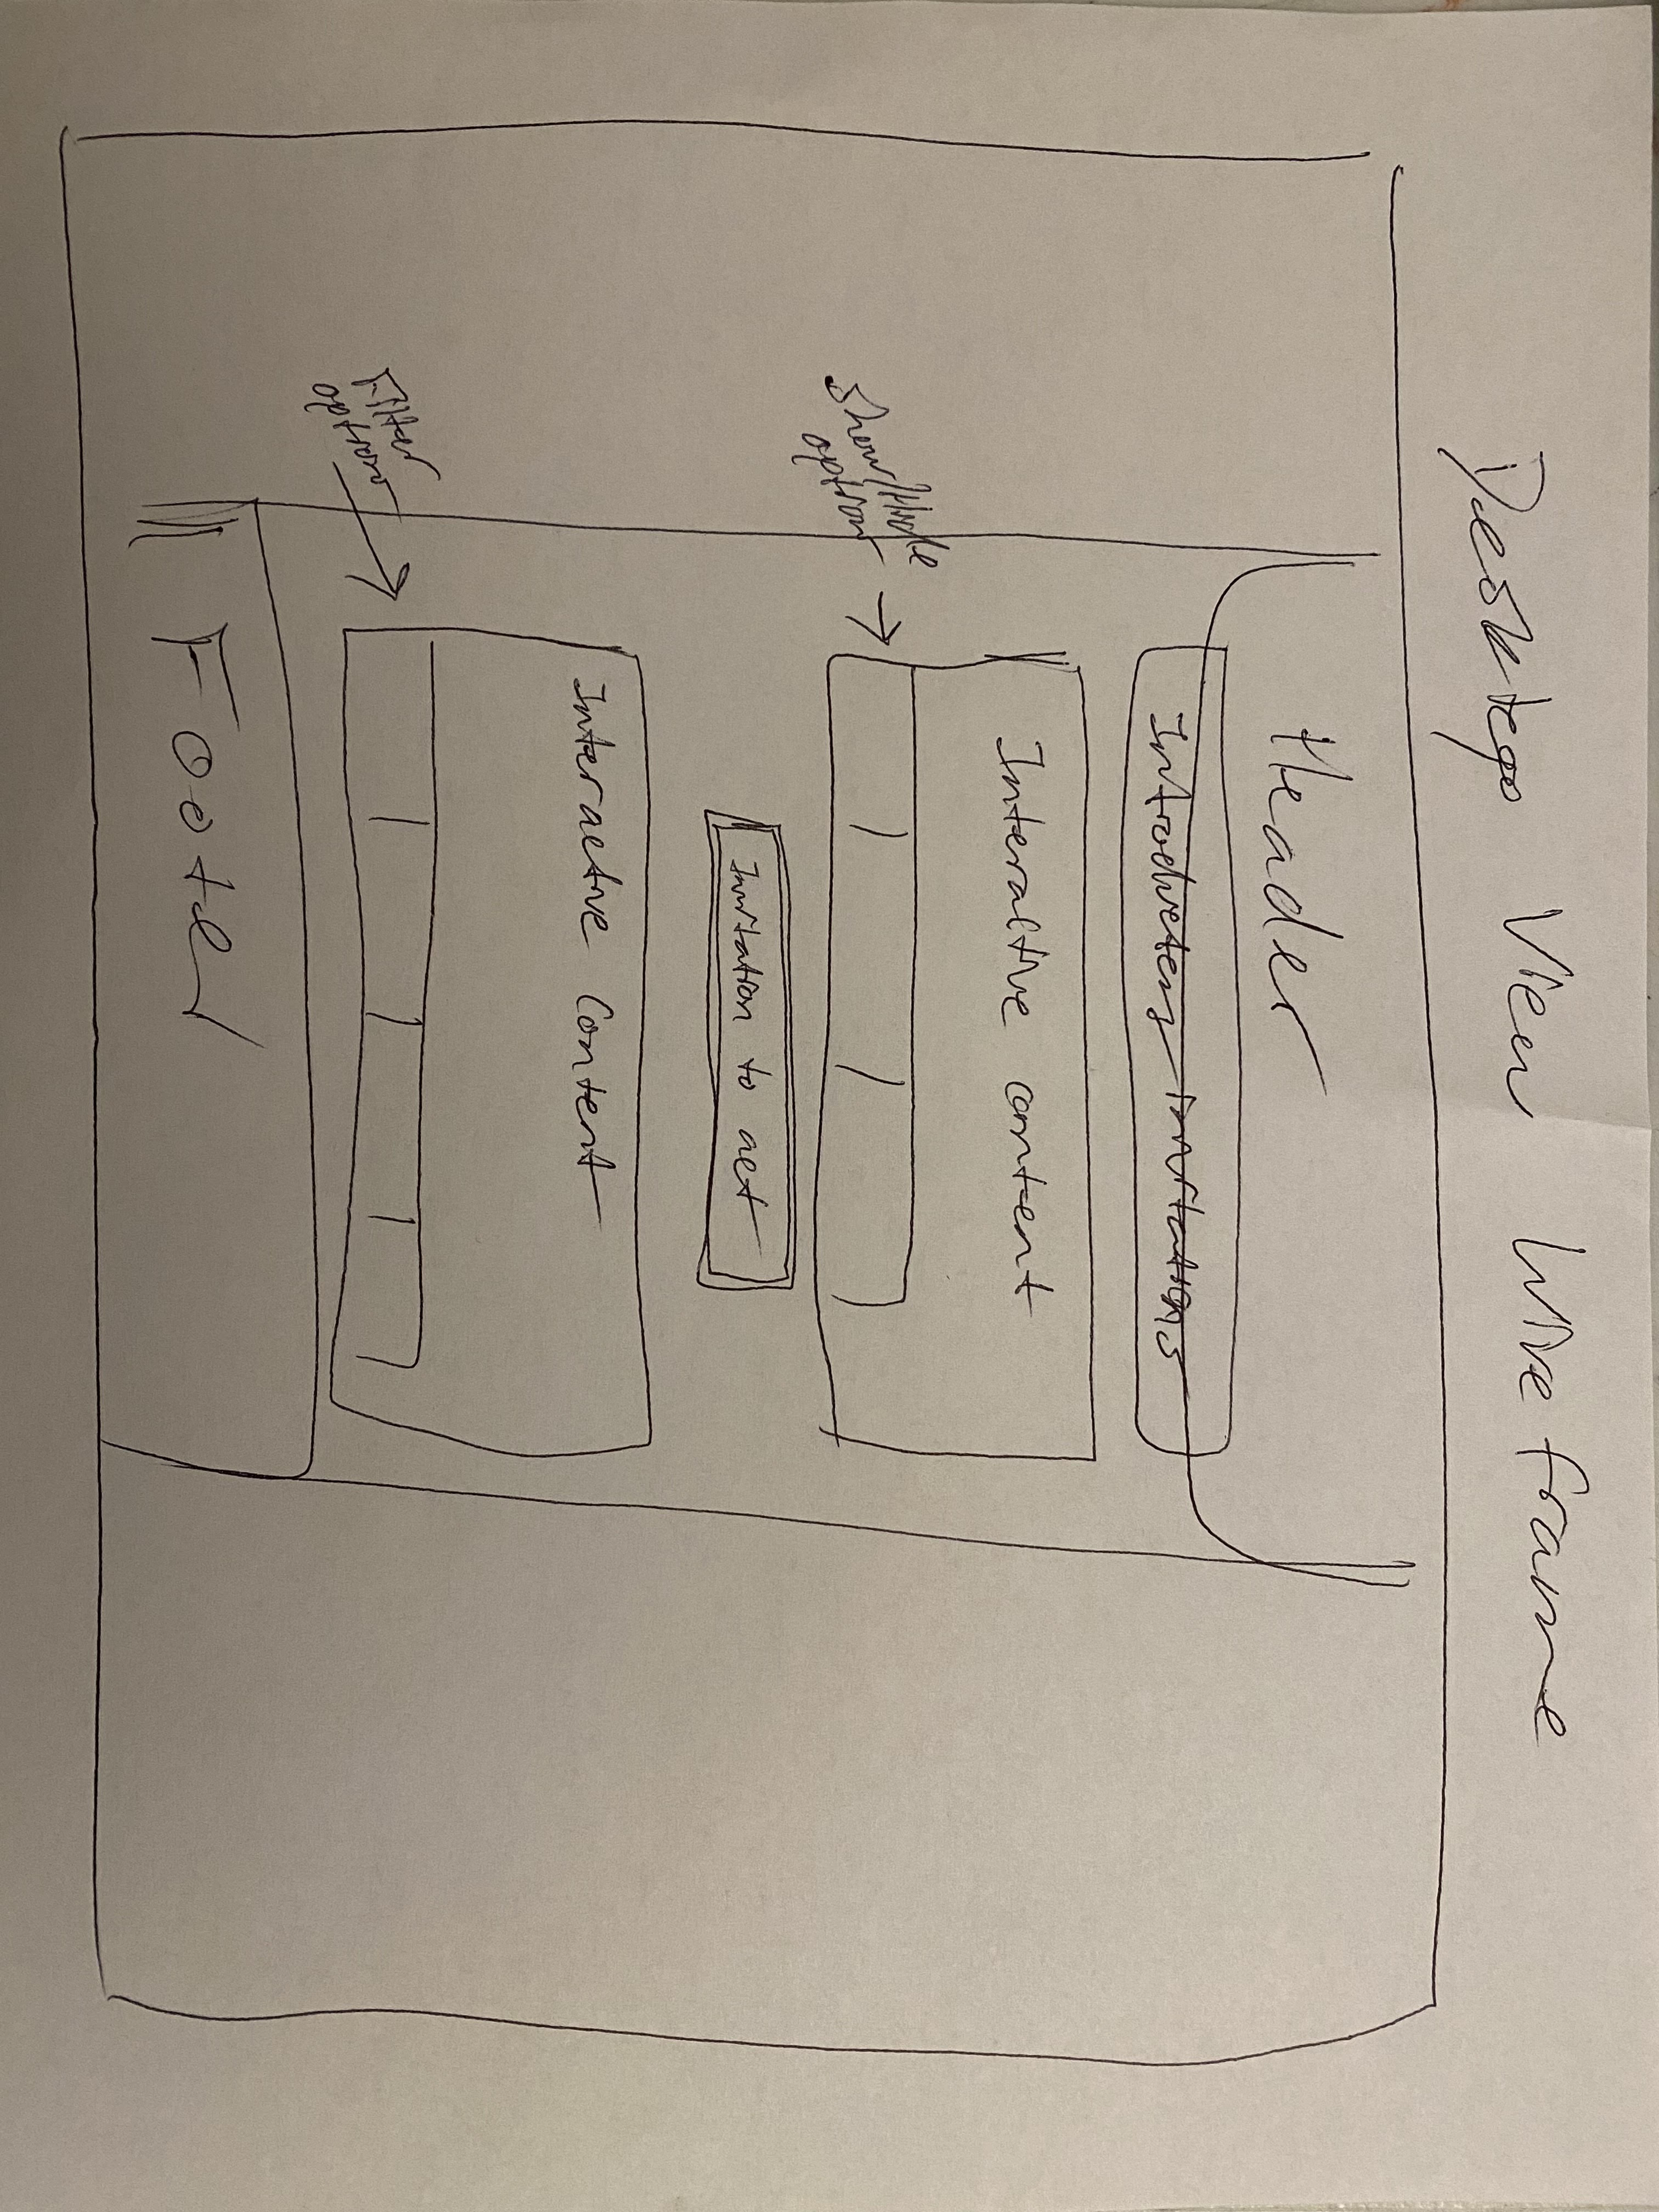 Desktop View Wireframe
Header
Introductory Invitations
Interactive content
Show/Hide
option
Invitation to act
Interactive Content
Filter
option
Footer